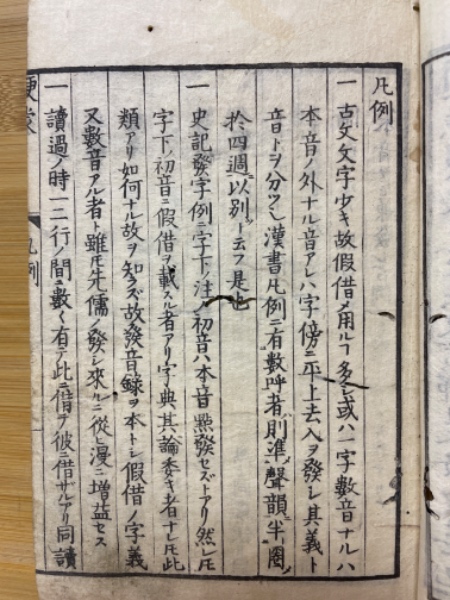 凡例
一古文文字少キ故假借メ用ルヿ多シ或ハ一字數音ナルハ
本音ノ外ナル音アレハ字傍ニ平上去入ヲ發シ其義ト
音トヲ分ツヿ漢書凡例ニ有數呼者則準聲韻半圈ノ
於四週以別ト云フ是也
一史記發字例ニ字下ノ注ノ初音ハ本音點發セズトアリ然レ𪜈
字下ノ初音ニ假借ヲ載スル者アリ字典其論委キ者ナレ𪜈此
類アリ如何ナル故ヲ知ラズ故發音録ヲ本トシ假借ノ字義
又數音アル者ト雖𪜈先儒ノ發シ來ルニ從ヒ漫ニ増益セス
一讀過ノ時一二行ノ間ニ數〱有テ此ニ借テ彼ニ借ザルアリ同讀
凡例